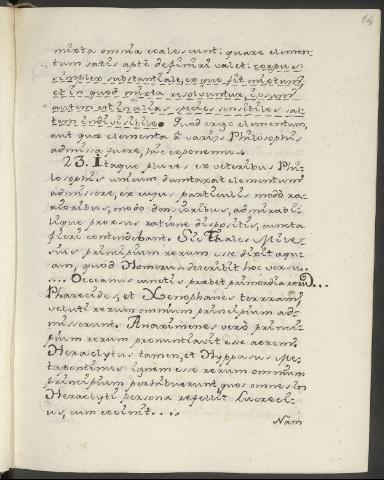 14
mixta omnia coalescunt: quare elemen-
tum satis aptè definiri valet: corpus
simplex substantiale, ex quo fit mixtum,
et in quod mixta resolvuntur, ipsum
autem est in alias species sensibiles sal-
tem indivisibile. Quod ergo elementum,
aut quæ elementa à varijs Philosophis
admissa fuere, hic exponemus.
23. Itaque plures ex veteribus Phi-
losophis unicum duntaxat elementum
admisere, ex cujus particulis modò ra-
rioribus, modo densioribus, admirabi-
lique prorsus ratione dispositis, cuncta
fieri contendebant. Sic Thales Mile-
sius principium rerum esse dixit aqu-
am, quod Homerus describit hoc versu..
.... Occeanus cunctis præbet primordia rerum...
Pherecides, et Xenophanes terram
veluti rerum omnium principium ad-
miserunt. Anaximenes verò princi-
pium rerum pronuntiavit esse aerem.
Heraclytus tamen, et Hyppasus Me-
tapontinus ignem esse rerum omnium
principium perhibuerunt, quos omnes in
Heraclyti persona refellit Lucreci-
us, cum cecinit....
Nam